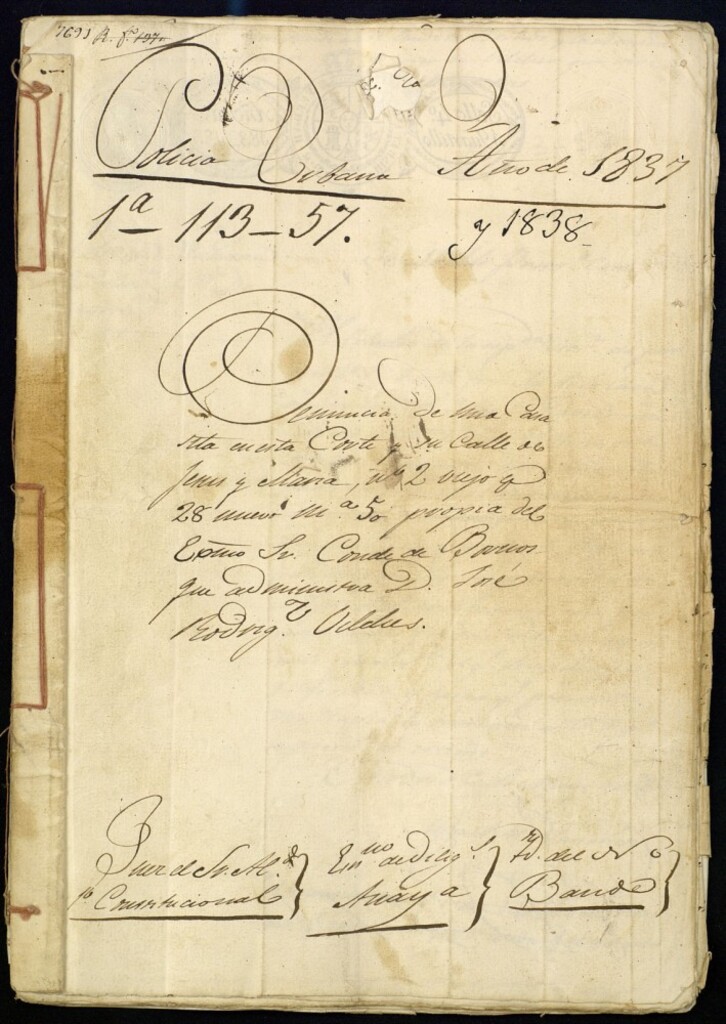 7691 R. fº 197
Policia Urbana Año de 1837
1ª - 113 - 57. y 1838
Denuncia de una Casa
sita en esta Corte y su Calle de
Jesus y Maria, nº 2 viejo y
28 nuevo mª 50 propia del
Exmo Sr. Conde de Bornos
que administra D. José
Rodrigz Veldes.
Juez el Sr. Al.e Esnno de Dilig.s Yd. del Nº
Constitucional Anaya Bande